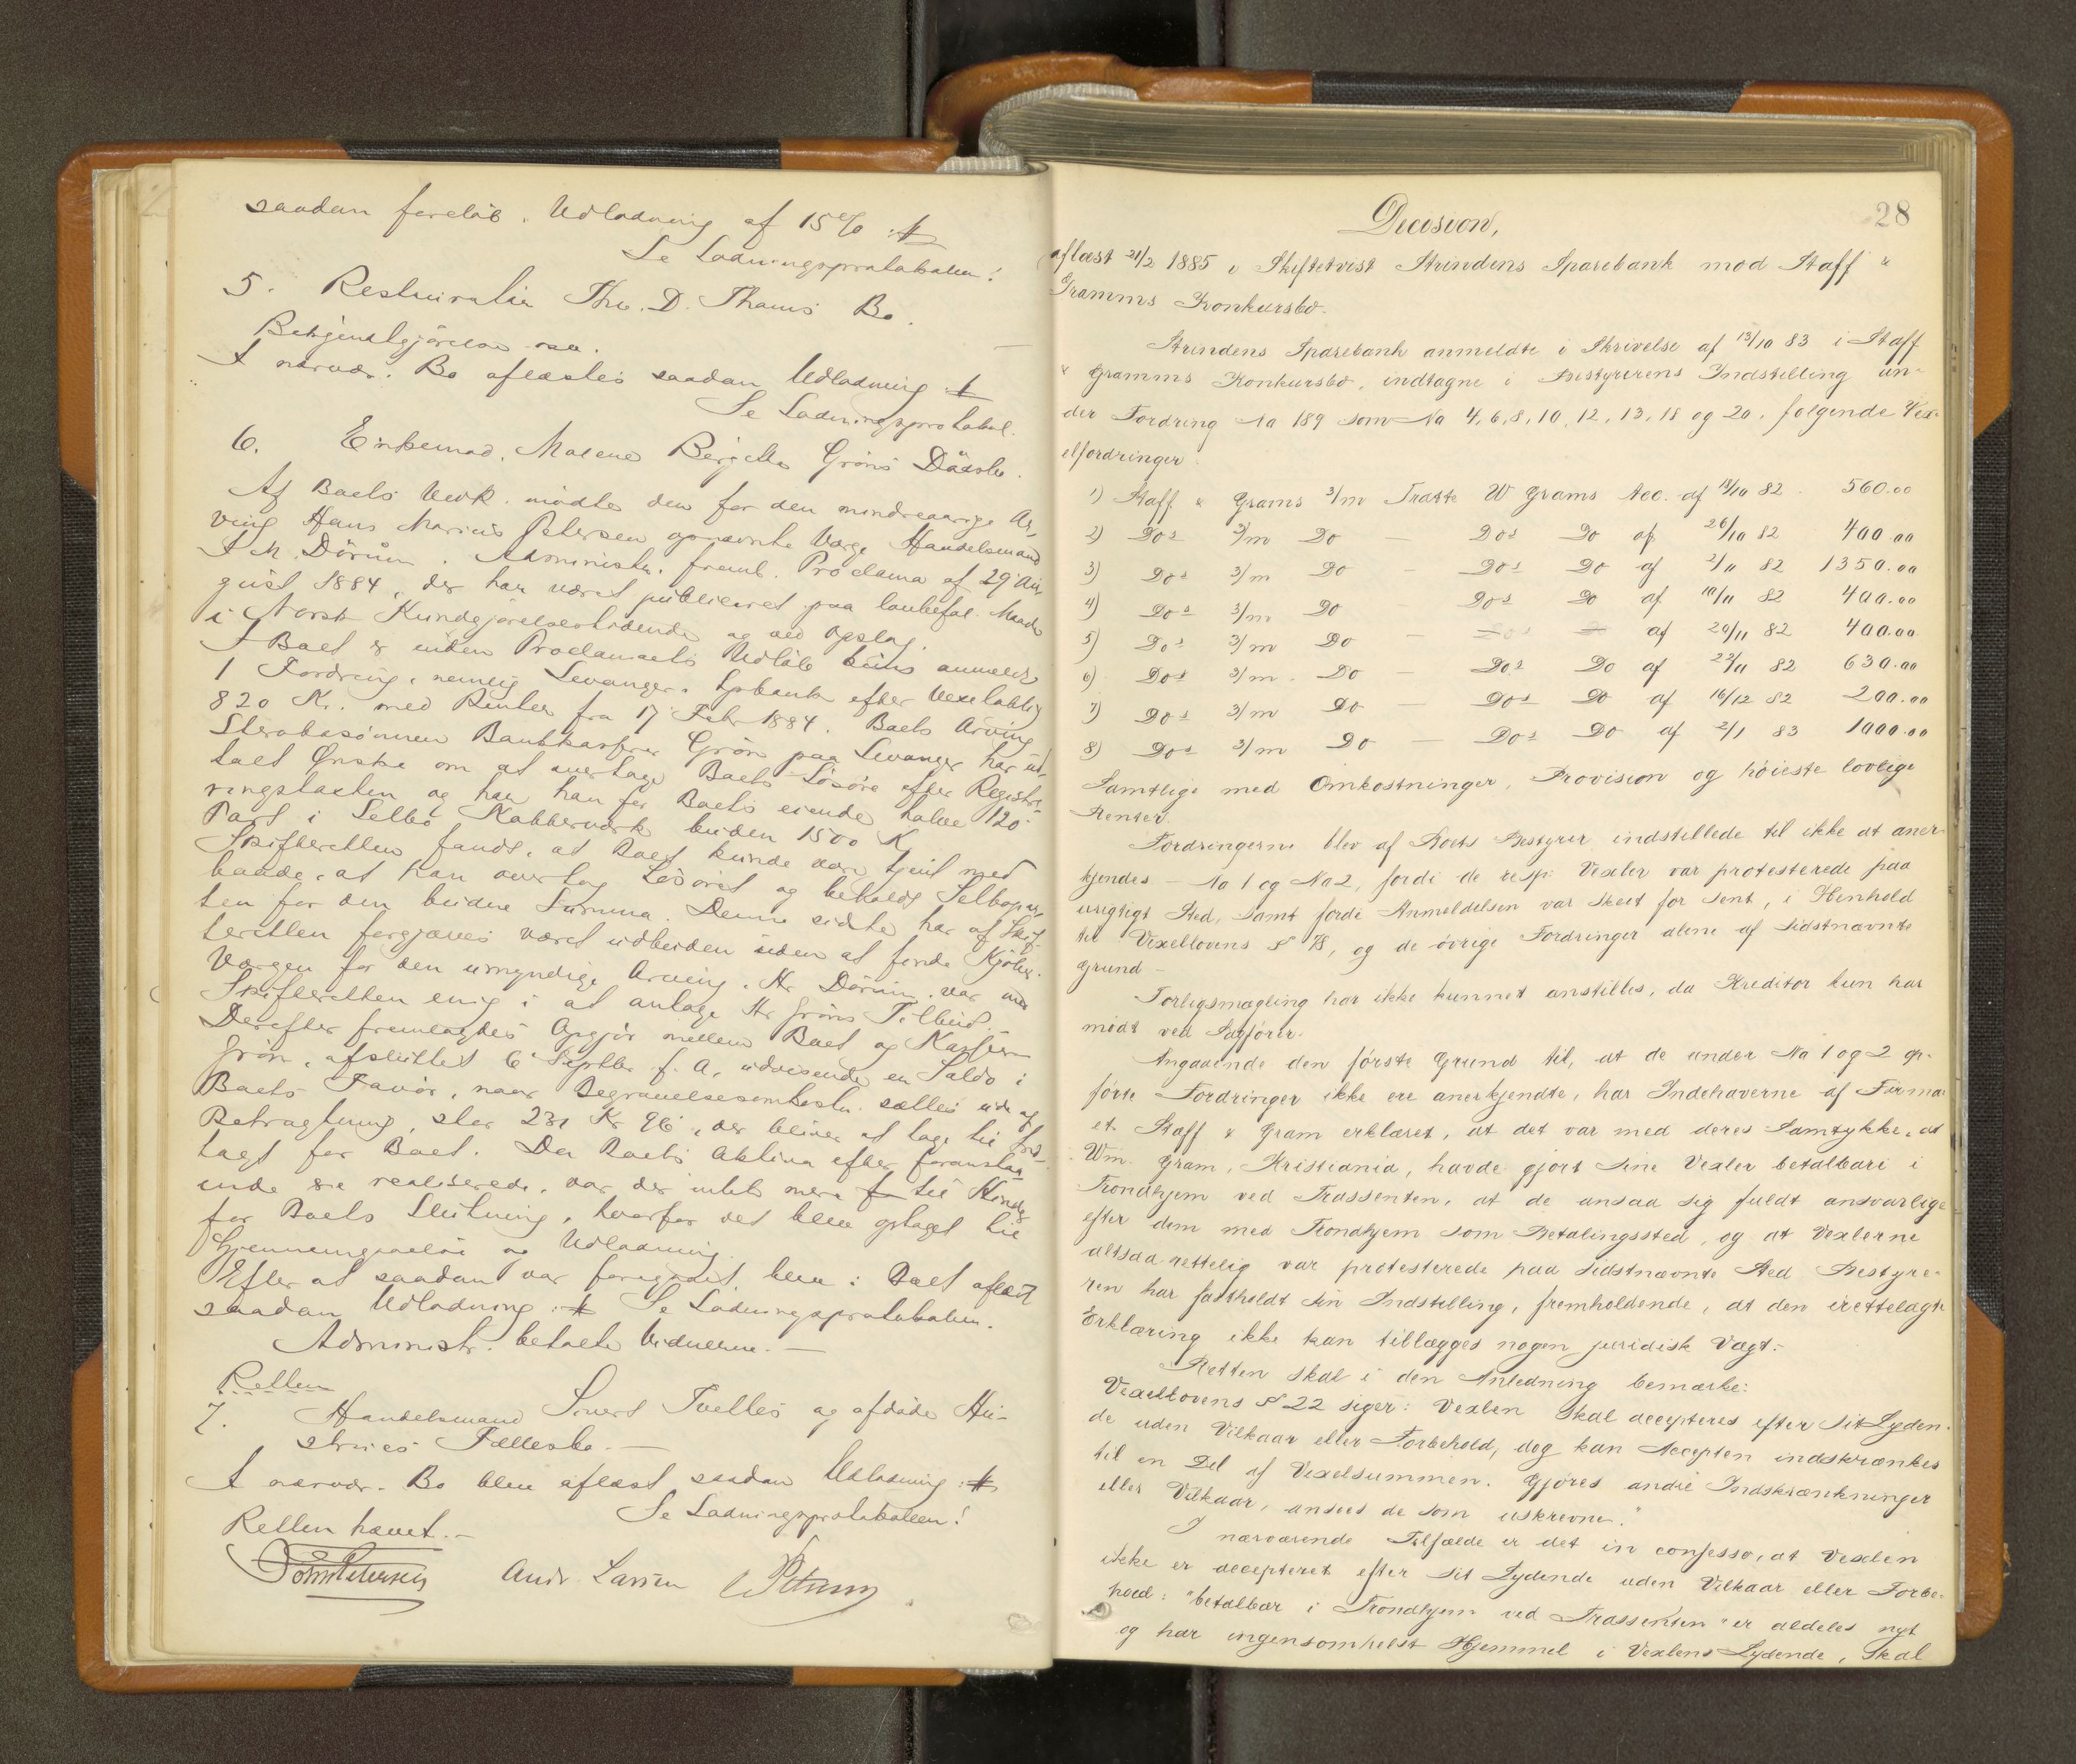 saadan foreløb. Udlodning af 15 % :#
Se Lodningsprotokollen!
5. Restauratør Thv. D. Thams Bo.
Bekjendtgjørelse
I nærvær. Bo aflæstes saadan Udlodning :#
Se Lodningsprotokol.
6. Enkemad. Malene Bergitte Grøns Dødsbo.
Af Boets Vedk. mødte den for den mindreaarige Ar-
ving Hans Marius Petersen opnævnte Værge Handelsmand
I M. Dørum. Administr. freml. Proclama af 29 Au-
gust 1884, der har været publiceret paa lovbefal. Maade
i Norsk Kundgjørelsestidende og ved Opslag.
I Boet er inden Proclamaets Udløb kuns anmeldt
1 Fordring, nemlig Levanger Spbank efter Vexelobl.
820 Kr. med Renter fra 17 Febr 1884. Boets Arving
Sterbosønnen Bankkasserer Grøn paa Levanger har ud-
talt Ønske om at overtage Boets Løsøre efter Registre-
ringstaxten og har han for Boets eiende halve 120
Part i Selbo Kobberværk buden 1500 K
Skifteretten fandt, at Boet kunde være tjent med
baade, at han overtog Løsøret og beholdt Selbopar-
ten for den budne Summa. Denne sidste har af Skif-
teretten forgjæves været udbuden uden at finde Kjøber.
Værgen for den umyndige Arving, Hr Dørum, var med
Skifteretten enig i at antage Hr Grøns Tilbud.
Derefter fremlagdes Opgjør mellem Boet og Kasserer
Grøn, afsluttet 6 Septbr f. A, udvisende en Saldo i
Boets Favør, naar Begravelsesomkostn. sættes ud af
Betragtning, stor 231 Kr 96, der bliver at tage til Ind-
tægt for Boet. Da Boets Aktiva efter foranstaa-
ende ere realiserede, var der intet mere til Hinder
for Boets Slutning, hvorfor det blev optaget til
Gjennemgaaelse og Udlodning.
Efter at saadant var foregaaet, blev i Boet aflæst
saadan Udlodning :# Se Lodningsprotokollen.
Administr. betalte Vidnerne.—
Retten
7. Handelsmand Sivert Tvettes og afdøde Hu-
strues Fællesbo.—
I nærvær. Bo blev aflæst saadan Udlodning :#
Se Lodningsprotokollen!
Retten hævet.—
Andr Larsen
28
Decision,
aflæst 21/2 1885 i Skiftetvist Strindens Sparebank mod Staff &
Gramms Konkursbo.
Strindens Sparebank anmeldte i Skrivelse af 13/10 83 i Staff
& Gramms Konkursbo, indtagne i Bestyrerens Indstilling un-
der Fordring No 189 som No 4, 6, 8, 10, 12, 13, 18 og 20, følgende Vex-
elfordringer:
1) Staff & Grams 3/m Tratte W Grams Acc. af 13/10 82. 560.00
2) Dos 3/m Do — Dos Do af 26/10 82 400.00
3) Dos 3/m Do — Dos Do af 2/11 82 1350.00
4) Dos 3/m Do — Dos Do af 10/11 82 400.00
5) Dos 3/m Do — Dos Do af 20/11 82 400.00
6) Dos 3/m. Do — Dos Do af 22/11 82 630.00
7) Dos 3/m Do — Dos Do af 16/12 82 200.00
8) Dos 3/m Do — Dos Do af 2/1 83 1000.00
Samtlige med Omkostninger, Provision og høieste lovlige
Renter.
Fordringerne blev af Boets Bestyrer indstillede til ikke at aner-
kjendes — No 1 og No 2, fordi de resp: Vexler var protesterede paa
urigtigt Sted, samt fordi Anmeldelsen var skeet for sent, i Henhold
til Vexellovens § 78, og de øvrige Fordringer alene af sidstnævnte
Grund —
Forligsmægling har ikke kunnet anstilles, da Kreditor kun har
mødt ved Sagfører.
Angaaende den første Grund til, at de under No 1 og 2 op-
førte Fordringer ikke ere anerkjendte, har Indehaverne af Firma-
et Staff & Gram erklæret, at det var med deres Samtykke, at
Wm. Gram, Kristiania, havde gjort sine Vexler betalbare i
Trondhjem ved Trassenten, at de ansaa sig fuldt ansvarlige
efter dem med Trondhjem som Betalingssted, og at Vexlerne
altsaa rettelig var protesterede paa sidstnævnte Sted. Bestyre-
ren har fastholdt sin Indstilling, fremholdende, at den irettelagte
Erklæring ikke kan tillægges nogen juridisk Vægt.—
Retten skal i den Anledning bemærke:
Vexellovens § 22 siger: Vexlen skal accepteres efter sit Lyden-
de uden Vilkaar eller Forbehold, dog kan Accepten indskrænkes
til en Del af Vexelsummen. Gjøres andre Indskrænkninger
eller Vilkaar, ansees de som uskrevne."
I nærværende Tilfælde er det in confesso, at Vexlen
ikke er accepteret efter sit Lydende uden Vilkaar eller Forbe-
hold: "betalbar i Trondhjem ved Trassenten" er aldeles nyt
og har ingensomhelst Hjemmel i Vexlens Lydende, skal